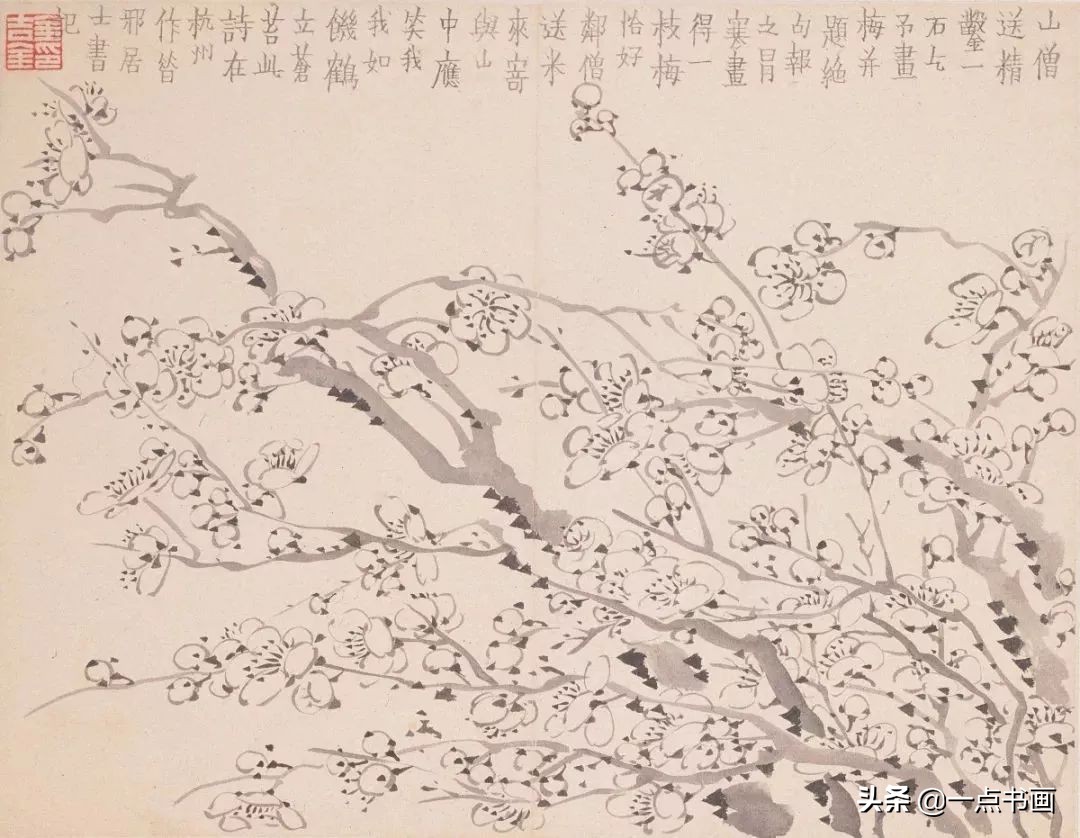 山僧
送精
鑿一
石乞
予畫
梅并
題絕
句報
之冒
寒畫
得一
枝梅
恰好
鄰僧
送米
來寄
與山
中應
笑我
我如
饑鶴
立蒼
苔此
詩在
杭州
作昔
邪居
士書
記
金吉金印
头条 @一点书画